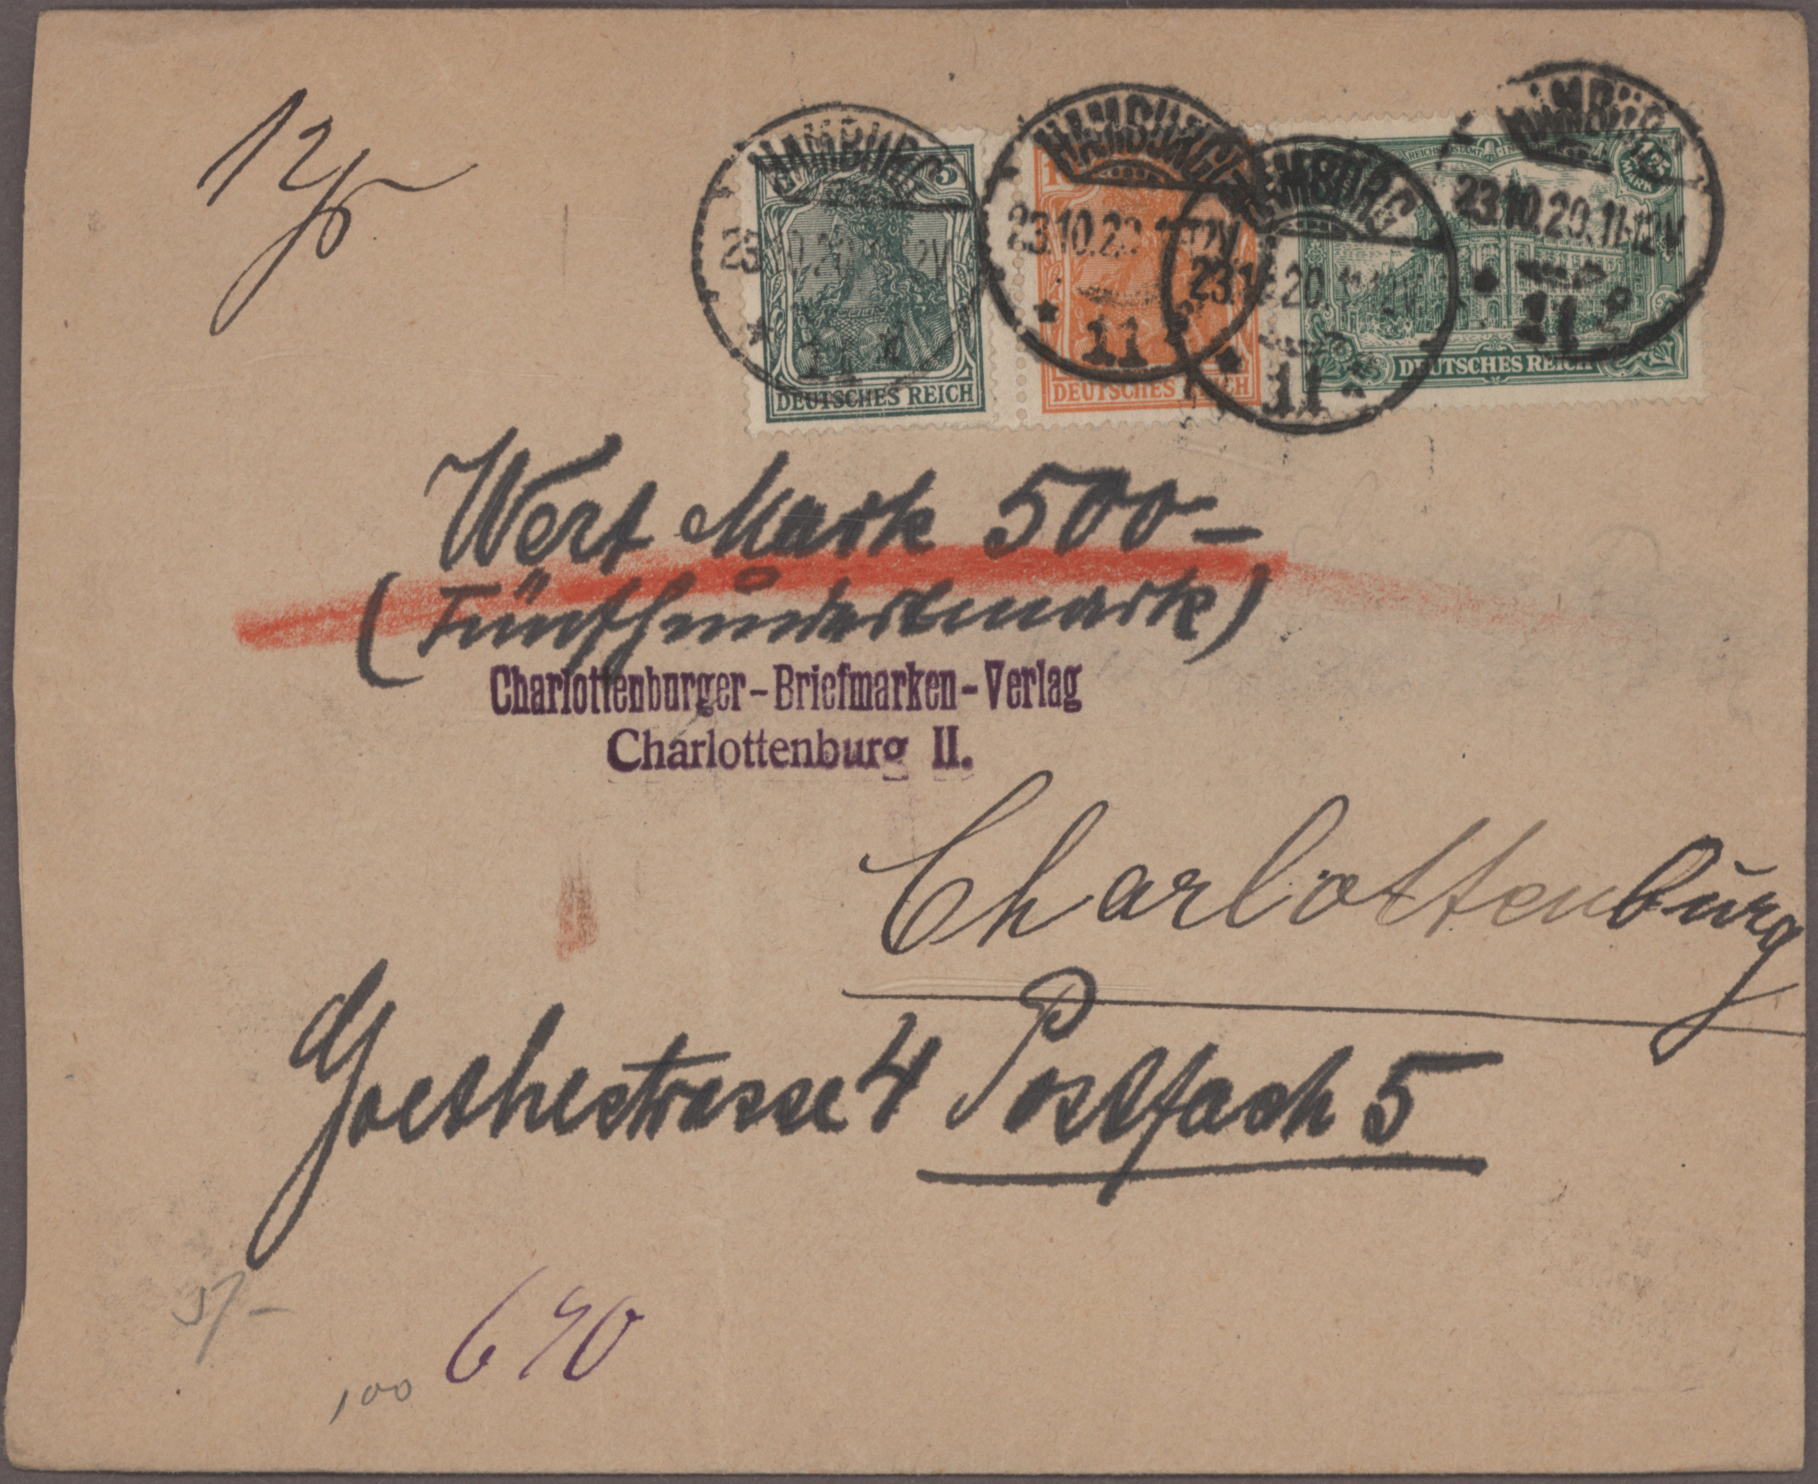 12
HAMBURG
23.10.20.11-12V
11
HAMBURG
23.10.20.11-12V
11
HAMBURG
23.10.20.11-12V
11
HAMBURG
23.10.20.11-12V
11
5
DEUTSCHES REICH
1
DEUTSCHES REICH
1.25
MARK
DEUTSCHES REICH
Wert Mark 500-
(Fünfhundertmark)
Charlottenburger-Briefmarken-Verlag
Charlottenburg II.
Charlottenburg
Goethestrasse 4 Postfach 5
100